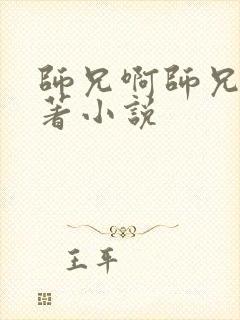 師兄啊師兄
著小説
王平